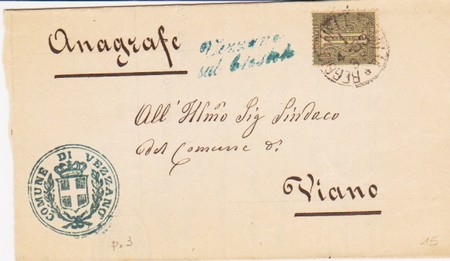 Anagrafe
Vezzano
sul Crostolo
All' Illmo Sig Sindaco
del Comune di
Viano
COMUNE DI VEZZANO
p. 3
15